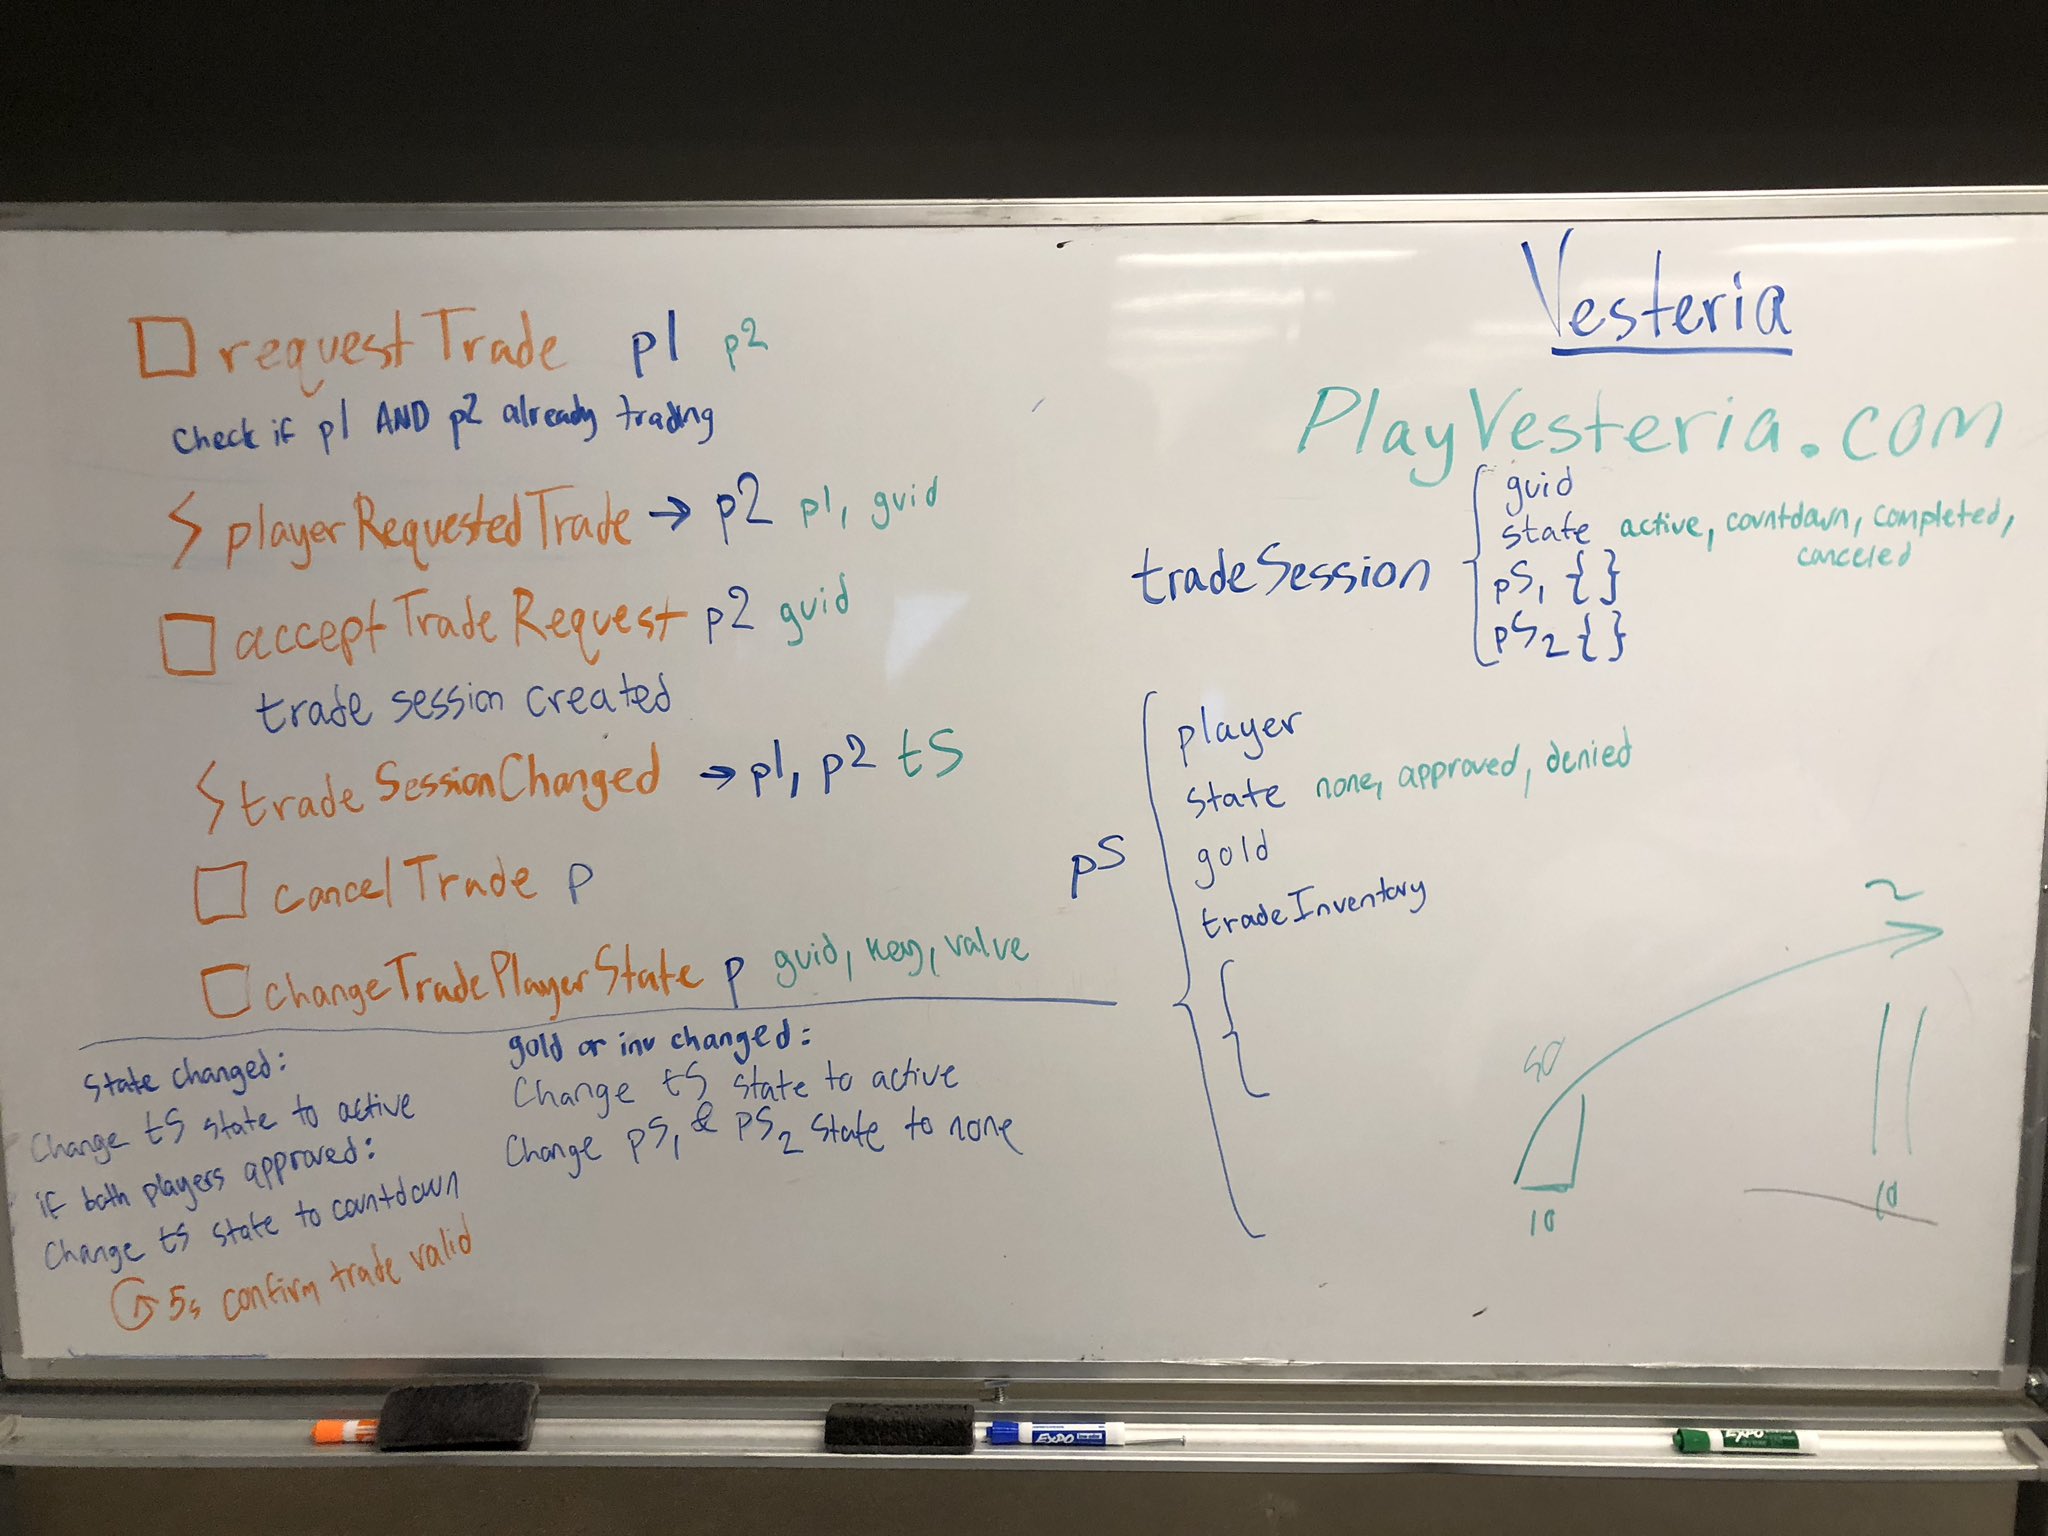 requestTrade p1 p2
Check if p1 AND p2 already trading
playerRequestedTrade → p2 p1, guid
acceptTradeRequest p2 guid
trade session created
tradeSessionChanged → p1, p2 tS
cancelTrade p
changeTradePlayerState p guid, key, value
State changed:
Change tS state to active
if both players approved:
Change tS state to countdown
5s confirm trade valid
gold or inv changed:
Change tS state to active
Change pS1 & pS2 state to none
Vesteria
PlayVesteria.com
tradeSession
guid
state active, countdown, completed,
canceled
pS1 { }
pS2 { }
pS
player
state none, approved, denied
gold
tradeInventory
50
10
10
EXPO
EXPO